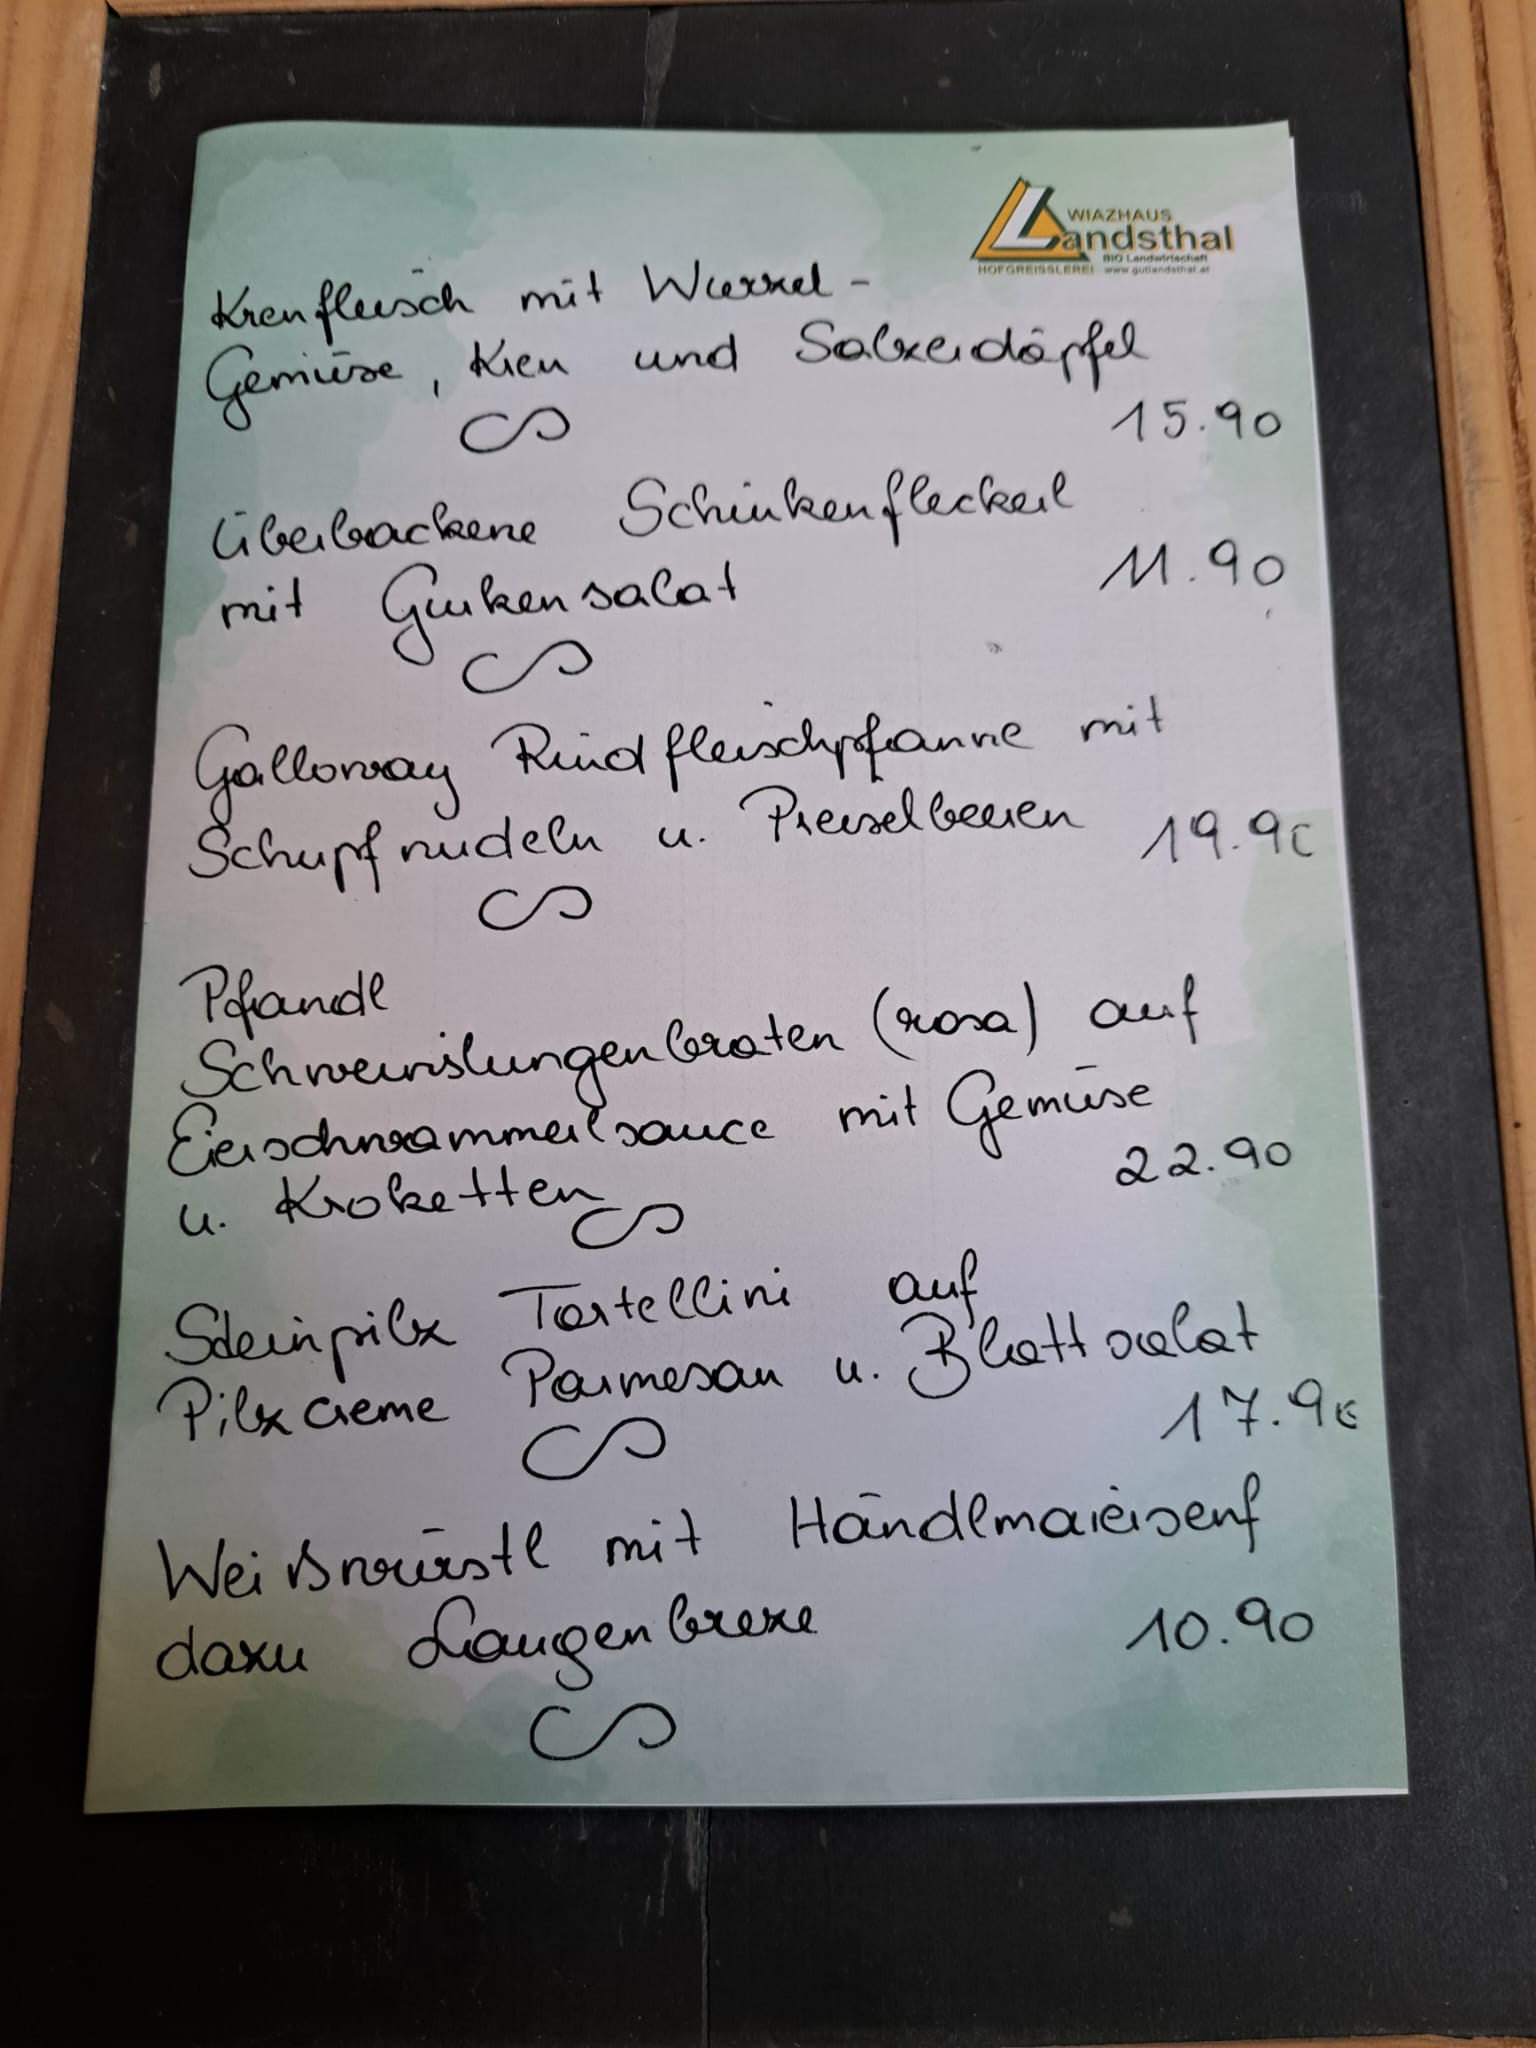 WIAZHAUS
Landsthal
BIO Landwirtschaft
HOFGREISSLEREI www.gutlandsthal.at
Krenfleisch mit Wurzel-
Gemüse, Kren und Salzerdäpfel
15.90
Überbackene Schinkenfleckerl
mit Gurkensalat 11.90
Galloway Rindfleischpfanne mit
Schupfnudeln u. Preiselbeeren 19.90
Pfandl
Schweinslungenbraten (rosa) auf
Eierschwammerlsauce mit Gemüse
u. Kroketten 22.90
Steinpilz Tortellini auf
Pilzcreme Parmesan u. Blattsalat
17.90
Weißwürstl mit Händlmaiersenf
dazu Laugenbreze 10.90